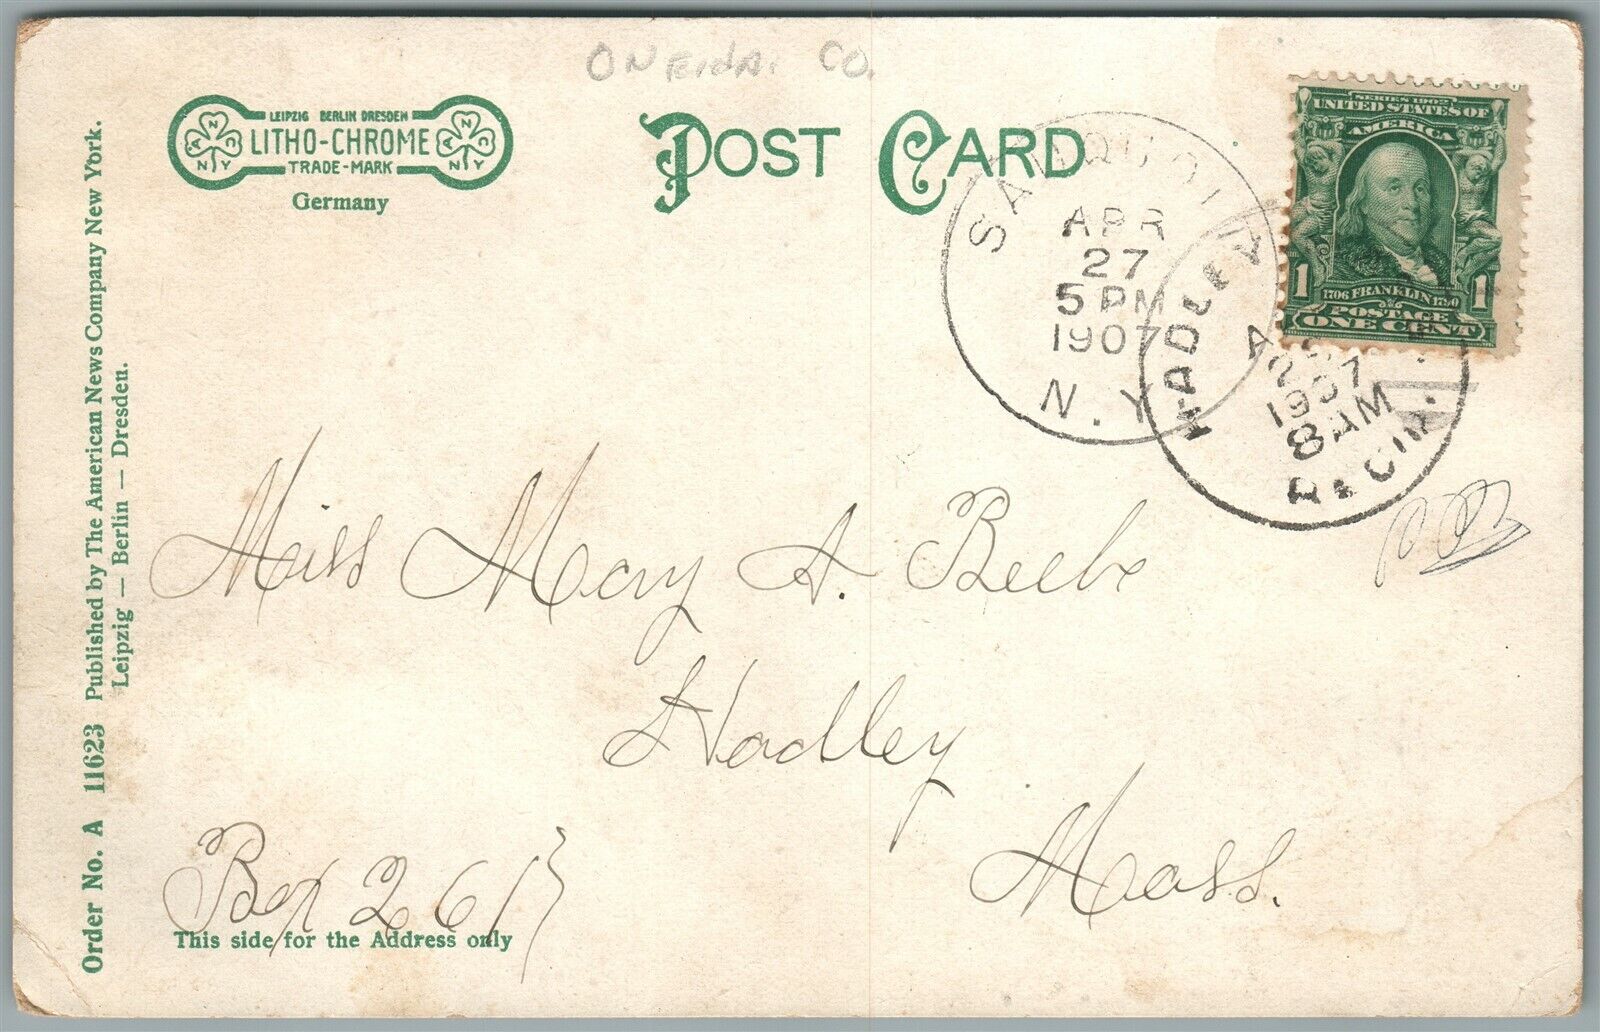 ONEIDA. CO.
LEIPZIG BERLIN DRESDEN
LITHO-CHROME
TRADE-MARK
A N C N Y
A N C N Y
Germany
POST CARD
SAUQUOIT
APR
27
5 PM
1907
N.Y.
HADLEY
1907
8 AM
REC'D.
SERIES 1902
UNITED STATES OF
AMERICA
1 1
1706 FRANKLIN 1790
POSTAGE
ONE CENT
Miss Mary A. Beebe
Hadley
Mass.
Box 261
This side for the Address only
Order No. A 11623 Published by The American News Company New York.
Leipzig — Berlin — Dresden.